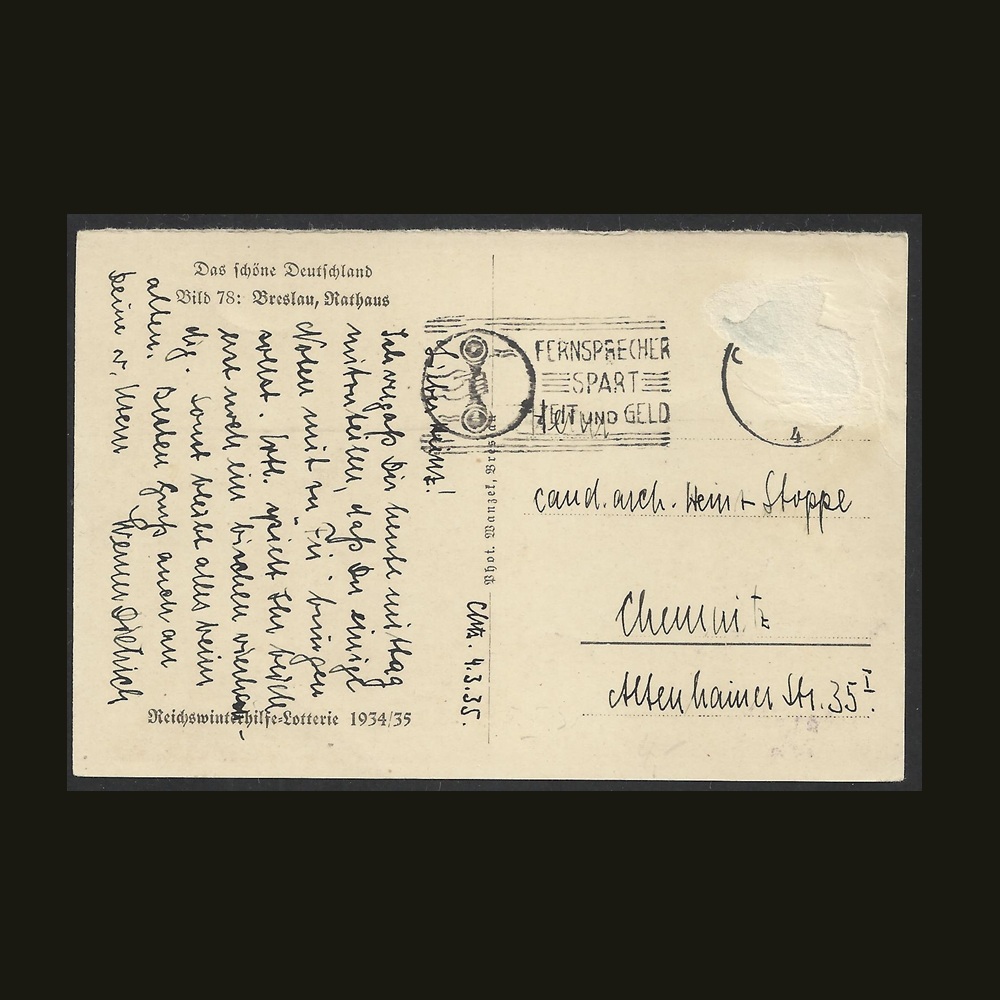 Das schöne Deutschland
Bild 78: Breslau, Rathaus
Chtz. 4.3.35.
Lieber Heinz!
Ich vergaß Dir heute mittag
mitzuteilen, daß Du einige
Noten mit zu bringen
sollst. spielt Ihr
erst noch ein bischen
dig. Sonst bleibt alles beim
alten. Besten Gruß auch an
Deine
Werner Dietrich
Reichswinterhilfe-Lotterie 1934/35
Phot. Wanzek, Breslau
FERNSPRECHER
SPART
ZEIT UND GELD
4
Herrn
cand. arch. Heinz Stoppe
Chemnitz
Altenhainer Str. 35 I.